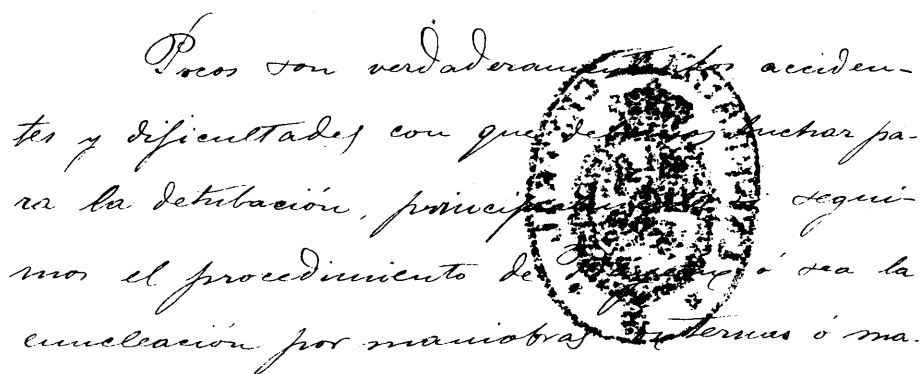 Pocos son verdaderamente los acciden-
tes y dificultades con que debemos luchar pa-
ra la detubación, principalmente si segui-
mos el procedimiento de ó sea la
enucleación por maniobras externas ó ma-